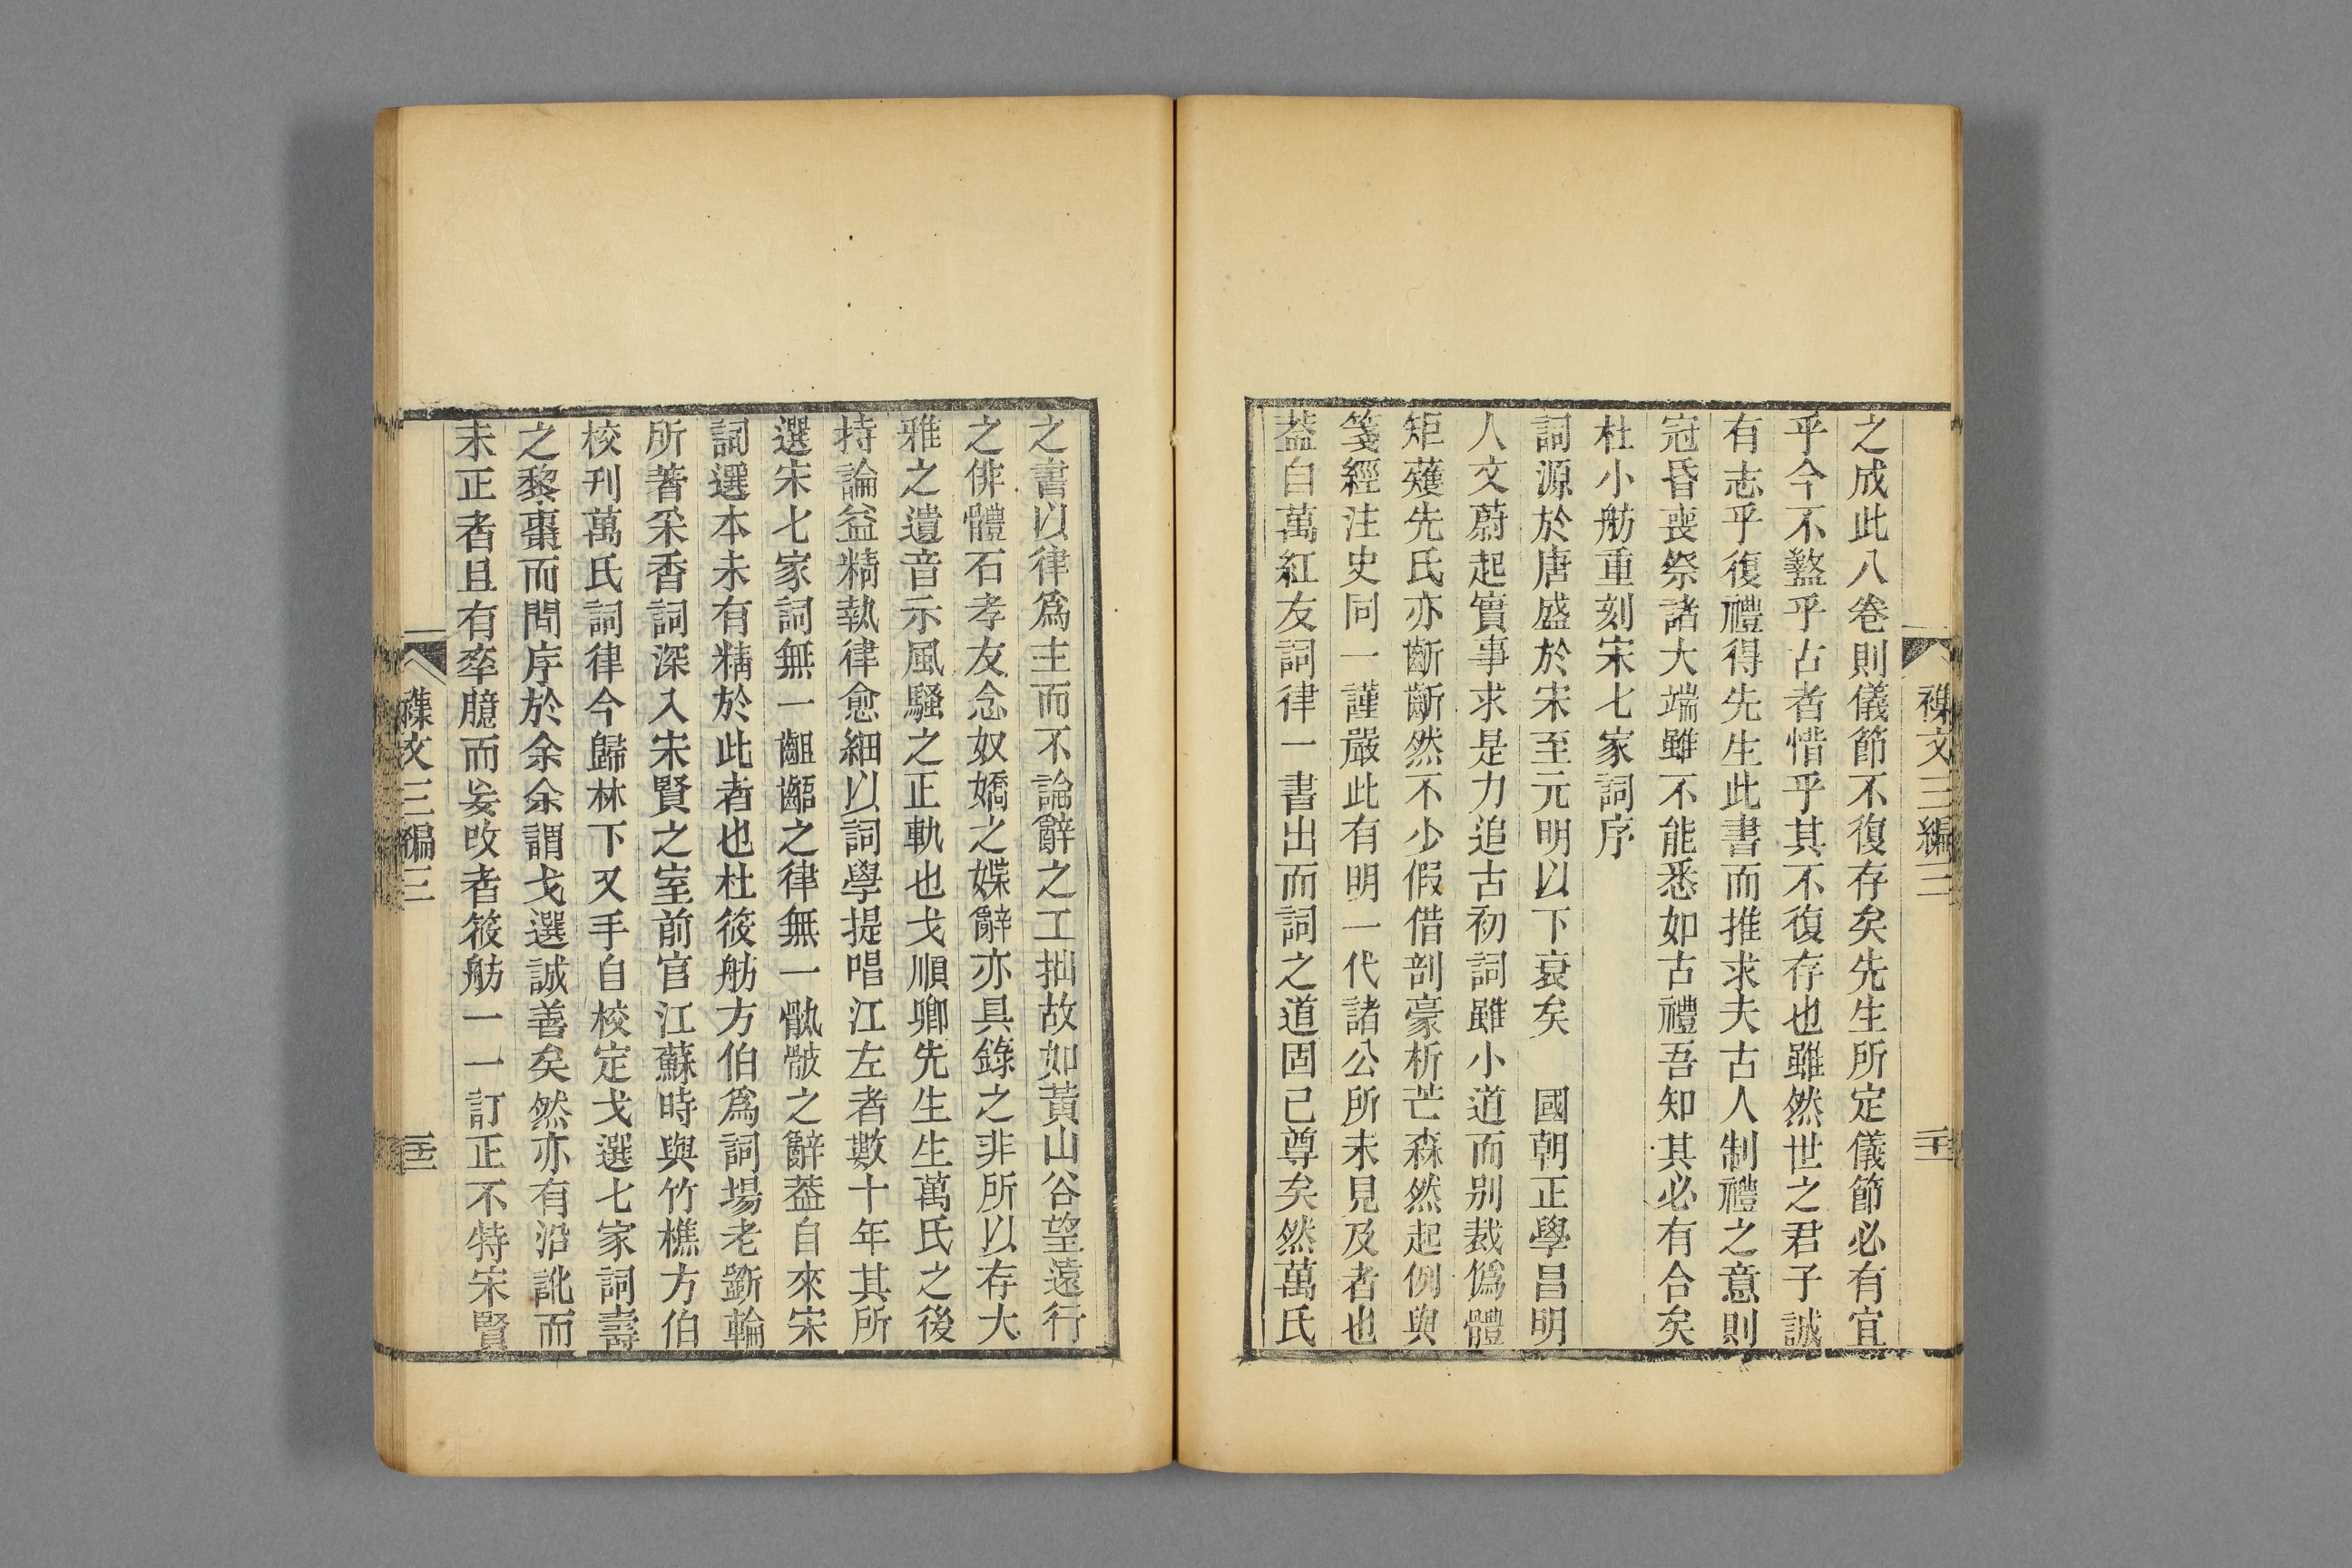 襍文三編三
之成此八卷則儀節不復存矣先生所定儀節必有宜
乎今不盭乎古者惜乎其不復存也雖然世之君子誠
有志乎復禮得先生此書而推求夫古人制禮之意則
冠昏喪祭諸大端雖不能悉如古禮吾知其必有合矣
杜小舫重刻宋七家詞序
詞源於唐盛於宋至元明以下衰矣　國朝正學昌明
人文蔚起實事求是力追古初詞雖小道而別裁僞體
矩矱先氏亦齗齗然不少假借剖豪析芒森然起例與
箋經注史同一謹嚴此有明一代諸公所未見及者也
葢自萬紅友詞律一書出而詞之道固已尊矣然萬氏
之書以律爲主而不論辭之工拙故如黃山谷望遠行
之俳體石孝友念奴嬌之媟辭亦具錄之非所以存大
雅之遺音示風騷之正軌也戈順卿先生生萬氏之後
持論益精執律愈細以詞學提唱江左者數十年其所
選宋七家詞無一齟齬之律無一骫骳之辭葢自來宋
詞選本未有精於此者也杜筱舫方伯爲詞場老斲輪
所著采香詞深入宋賢之室前官江蘇時與竹樵方伯
校刊萬氏詞律今歸林下又手自校定戈選七家詞壽
之黎棗而問序於余余謂戈選誠善矣然亦有沿訛而
未正者且有率臆而妄改者筱舫一一訂正不特宋賢
襍文三編三